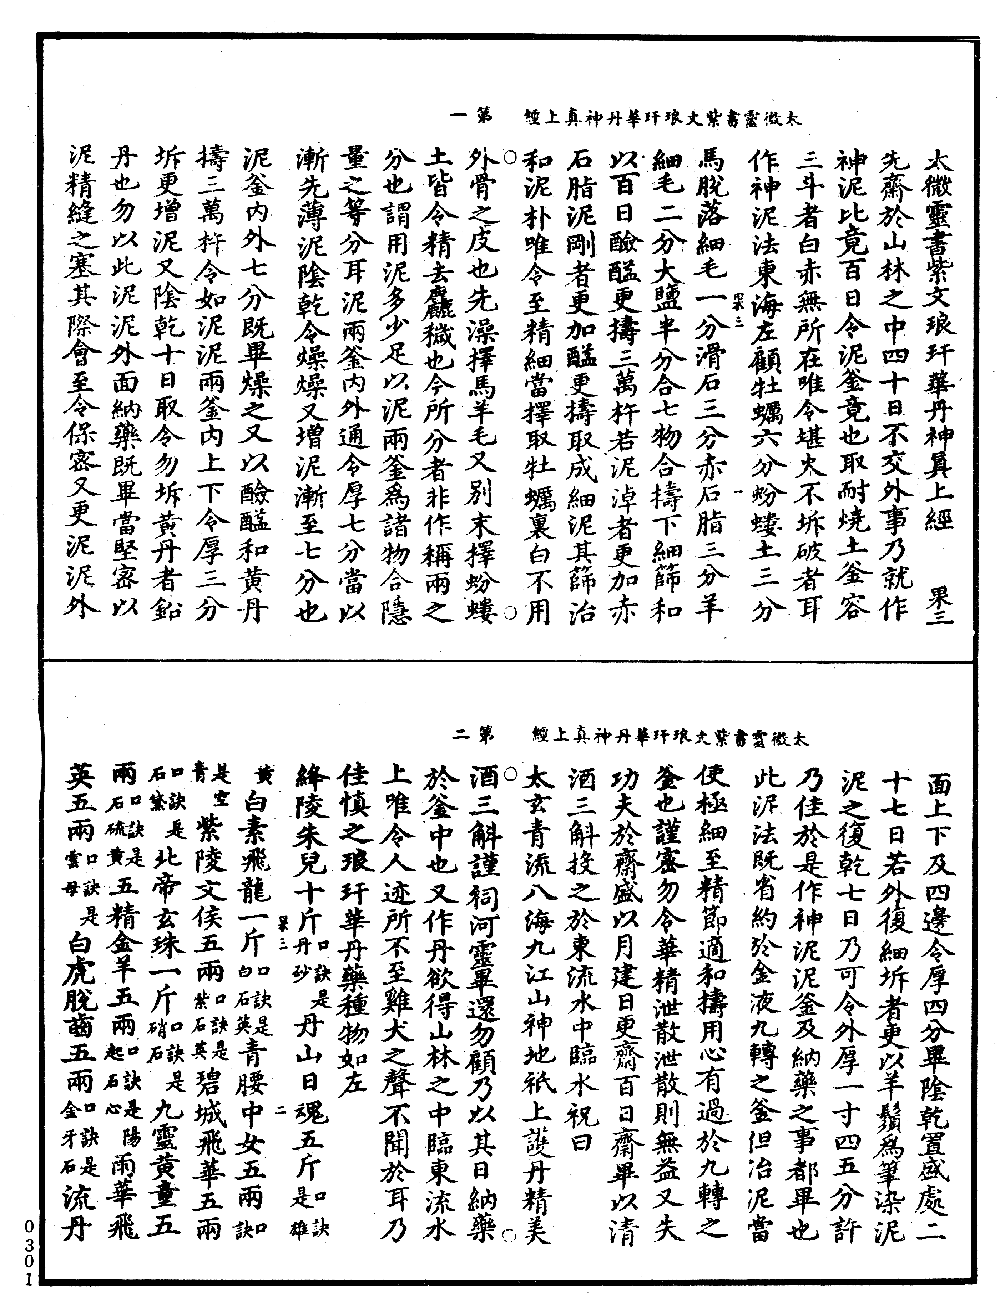 太微靈書紫文琅玕華丹神真上經　第一
太微靈書紫文琅玕華丹神真上經　果三
先齋於山林之中四十日不交外事乃就作
神泥比竟百日令泥釜竟也取耐燒土釜容
三斗者白赤無所在唯令堪火不坼破者耳
作神泥法東海左顧牡蠣六分蚡螻土三分
馬脫落細毛一分滑石三分赤石脂三分羊
細毛二分大鹽半分合七物合擣下細篩和
以百日醶醯更擣三萬杵若泥淖者更加赤
石脂泥剛者更加醯更擣取成細泥其篩治
和泥朴唯令至精細當擇取牡蠣裏白不用
外骨之皮也先澡擇馬羊毛又別末擇蚡螻
土皆令精去麤穢也今所分者非作稱兩之
分也謂用泥多少足以泥兩釜爲諸物合隱
量之等分耳泥兩釜內外通令厚七分當以
漸先薄泥陰乾令燥燥又增泥漸至七分也
泥釜內外七分旣畢燥之又以醶醯和黃丹
擣三萬杵令如泥泥兩釜內上下令厚三分
坼更增泥又陰乾十日取令勿坼黃丹者鉛
丹也勿以此泥泥外面納藥旣畢當堅密以
泥精縫之塞其際會至令保密又更泥泥外
果三
一
太微靈書紫文琅玕華丹神真上經　第二
面上下及四邊令厚四分畢陰乾置盛處二
十七日若外復細坼者更以羊鬚爲筆染泥
泥之復乾七日乃可令外厚一寸四五分許
乃佳於是作神泥泥釜及納藥之事都畢也
此泥法旣省約於金液九轉之釜但冶泥當
使極細至精節適和擣用心有過於九轉之
釜也謹密勿令華精泄散泄散則無益又失
功夫於齋盛以月建日更齋百日齋畢以清
酒三斛投之於東流水中臨水祝曰
太玄青流八海九江山神地祇上護丹精美
酒三斛謹祠河靈畢還勿顧乃以其日納藥
於釜中也又作丹欲得山林之中臨東流水
上唯令人迹所不至雞犬之聲不聞於耳乃
佳慎之琅玕華丹藥種物如左
絳陵朱兒十斤口訣是丹砂丹山日魂五斤口訣是雄
黃白素飛龍一斤口訣是白石英青腰中女五兩口訣
是空青紫陵文侯五兩口訣是紫石英碧城飛華五兩
口訣是石黛北帝玄珠一斤口訣是硝石九靈黃童五
兩口訣是石硫黃五精金羊五兩口訣是起石陽雨華飛
英五兩口訣是雲母白虎脫齒五兩口訣是金牙石流丹
果三
二
0301